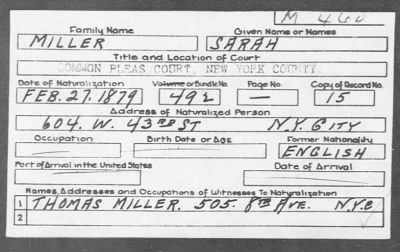 M 460
Family Name Given Name or Names
MILLER SARAH
Title and Location of Court
COMMON PLEAS COURT, NEW YORK COUNTY.
Date of Naturalization Volume or Bundle No. Page No. Copy of Record No.
FEB. 27. 1879 492 — 15
Address of Naturalized Person
604. W. 43RD ST N.Y. CITY
Occupation Birth Date or Age Former Nationality
ENGLISH
Port of Arrival in the United States Date of Arrival
Names, Addresses and Occupations of Witnesses To Naturalization
1 THOMAS MILLER. 505. 8TH AVE. N.Y.C
2